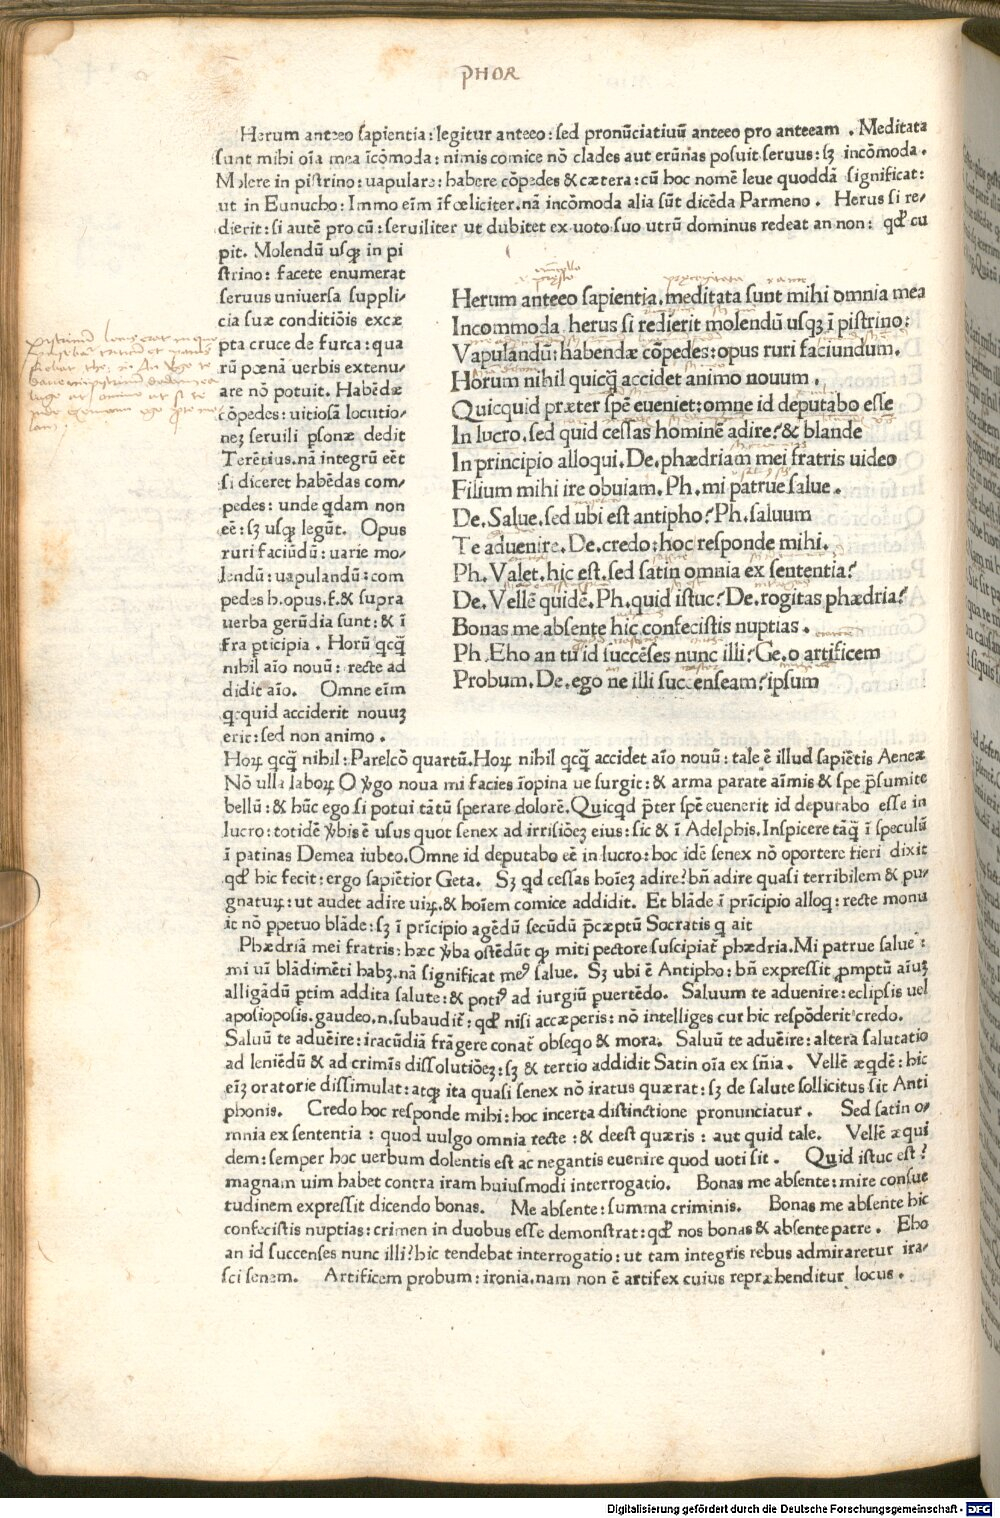 PHOR
Herum anteeo sapientia: legitur anteeo: sed pronũciatiuũ anteeo pro anteeam . Meditata
sunt mihi oĩa mea ĩcõmoda: nimis comice nõ clades aut erũnas posuit seruus: sꝫ incõmoda .
Molere in pistrino: uapulare: habere cõpedes & cætera: cũ hoc nomẽ leue quoddã significat:
ut in Eunucho: Immo eĩm ĩfœliciter. nã incõmoda alia sũt dicẽda Parmeno . Herus si re⸗
dierit: si autẽ pro cũ: seruiliter ut dubitet ex uoto suo utrũ dominus redeat an non: qđ cu
pit. Molendũ usqꝫ in pi
strino: facete enumerat
seruus uniuersa suppli⸗
cia suæ conditiõis excæ
pta cruce de furca: qua
rũ pœnã uerbis extenu⸗
are nõ potuit. Habẽdæ
cõpedes: uitiosã locutio⸗
neꝫ seruili ꝑsonæ dedit
Terẽtius. nã integrũ eẽt
si diceret habẽdas com⸗
pedes: unde qdam non
eẽ: sꝫ usqꝫ legũt. Opus
ruri faciũdũ: uarie mo⸗
lendũ: uapulandũ: com
pedes h. opus. f. & supra
uerba gerũdia sunt: & ĩ
fra ꝑticipia . Horũ qcq̃
nihil aĩo nouũ: recte ad
didit aĩo. Omne eĩm
qcquid acciderit nouuꝫ
erit: sed non animo .
Herum anteeo sapientia. meditata sunt mihi omnia mea
Incommoda. herus si redierit molendũ usqꝫ ĩ pistrino:
Vapulandũ: habendæ cõpedes: opus ruri faciundum.
Horum nihil quicq̃ accidet animo nouum .
Quicquid præter spẽ eueniet: omne id deputabo esse
In lucro. sed quid cessas hominẽ adire? & blande
In principio alloqui. De. phædriam mei fratris uideo
Filium mihi ire obuiam. Ph. mi patrue salue .
De. Salue. sed ubi est antipho? Ph. saluum
Te aduenire. De. credo: hoc responde mihi.
Ph. Valet. hic est. sed satin omnia ex sententia?
De. Vellẽ quidẽ. Ph. quid istuc? De. rogitas phædria?
Bonas me absente hic confecistis nuptias .
Ph. Eho an tu id succẽses nunc illi? Ge. o artificem
Probum. De. ego ne illi succenseam? ipsum
Hoꝝ qcq̃ nihil: Parelcõ quartũ. Hoꝝ nihil qcq̃ accidet aĩo nouũ: tale ẽ illud sapiẽtis Aeneæ
Nõ ulla laboꝝ O ỹgo noua mi facies ĩopina ue surgit: & arma parate aĩmis & spe p̃sumite
bellũ: & hũc ego si potui tãtũ sperare dolorẽ. Quicqd p̃ter spẽ euenerit id deputabo esse in
lucro: totidẽ ỹbis ẽ usus quot senex ad irrisiõeꝫ eius: sic & ĩ Adelphis. Inspicere tãq̃ ĩ speculũ
ĩ patinas Demea iubeo. Omne id deputabo eẽ in lucro: hoc idẽ senex nõ oportere fieri dixit
qđ hic fecit: ergo sapiẽtior Geta. Sꝫ qd cessas hoĩeꝫ adire? bñ adire quasi terribilem & pu⸗
gnatuꝝ: ut audet adire uiꝝ. & hoĩem comice addidit. Et blãde ĩ prĩcipio alloq: recte monu
it nõ ꝑpetuo blãde: sꝫ ĩ prĩcipio agẽdũ secũdũ p̃cæptũ Socratis q ait
Phædriã mei fratris: hæc ỹba ostẽdũt qꝫ miti pectore suscipiat̃ phædria. Mi patrue salue :
mi uĩ blãdimẽti habꝫ. nã significat meꝰ salue. Sꝫ ubi ẽ Antipho: bñ expressit ꝓmptũ aĩuꝫ
alligãdũ ꝑtim addita salute: & potiꝰ ad iurgiũ puertẽdo. Saluum te aduenire: eclipsis uel
aposioposis. gaudeo. n. subaudit̃: qđ nisi accæperis: nõ intelliges cur hic respõderit credo.
Saluũ te aduẽire: iracũdiã frãgere conat̃ obseqo & mora. Saluũ te aduẽire: altera salutatio
ad leniẽdũ & ad crimĩs dissolutiõeꝫ: sꝫ & tertio addidit Satin oĩa ex sñia. Vellẽ æqdẽ: hic
eĩꝫ oratorie dissimulat: atqꝫ ita quasi senex nõ iratus quærat: sꝫ de salute sollicitus sit Anti
phonis. Credo hoc responde mihi: hoc incerta distinctione pronunciatur . Sed satin o⸗
mnia ex sententia : quod uulgo omnia recte : & deest quæris : aut quid tale. Vellẽ æqui
dem: semper hoc uerbum dolentis est ac negantis euenire quod uoti sit . Quid istuc est ?
magnam uim habet contra iram huiusmodi interrogatio. Bonas me absente: mire consue
tudinem expressit dicendo bonas. Me absente: summa criminis. Bonas me absente hic
confecistis nuptias: crimen in duobus esse demonstrat: qđ nos bonas & absente patre . Eho
an id succenses nunc illi? hic tendebat interrogatio: ut tam integris rebus admiraretur ira⸗
sci senem. Artificem probum: ironia. nam non ẽ artifex cuius repræhenditur locus .
Digitalisierung gefördert durch die Deutsche Forschungsgemeinschaft - DFG